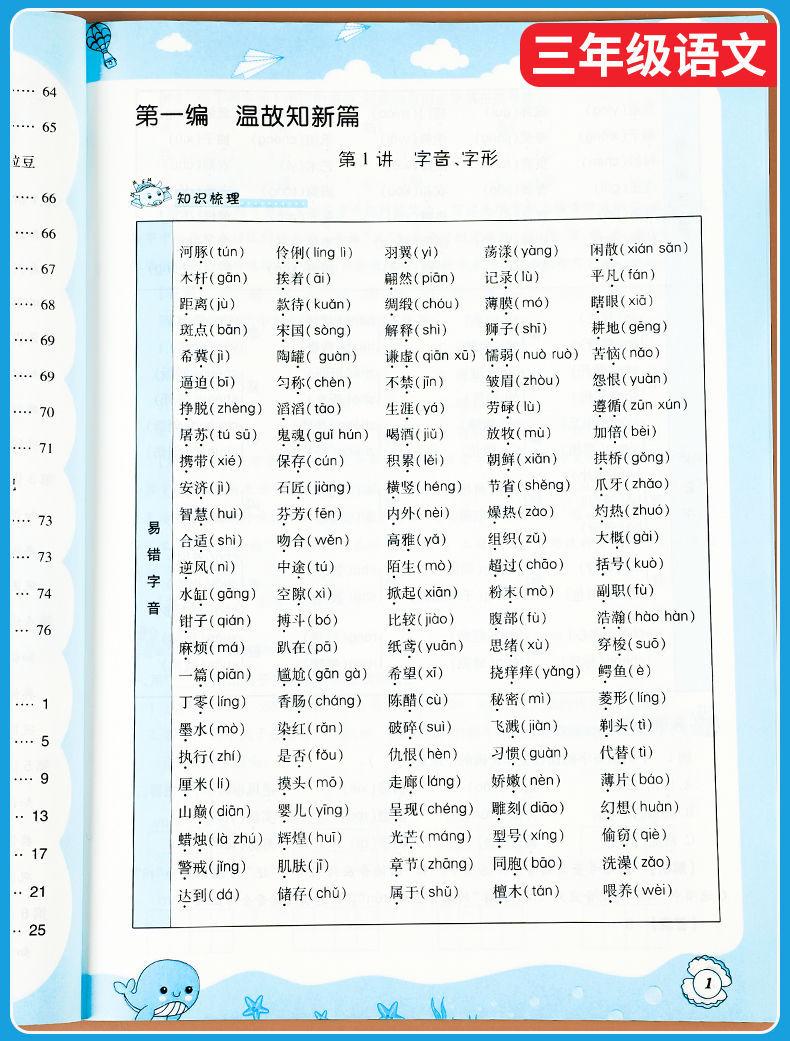 三年级语文
64
65
立豆
66
66
67
68
69
69
70
71
73
73
74
76
1
5
9
13
17
21
25
第一编 温故知新篇
第1讲 字音、字形
知识梳理
易错字音
河豚(tún) 伶俐(líng lì) 羽翼(yì) 荡漾(yàng) 闲散(xián sǎn)
木杆(gān) 挨着(āi) 翩然(piān) 记录(lù) 平凡(fán)
距离(jù) 款待(kuǎn) 绸缎(chóu) 薄膜(mó) 瞎眼(xiā)
斑点(bān) 宋国(sòng) 解释(shì) 狮子(shī) 耕地(gēng)
希冀(jì) 陶罐( guàn) 谦虚(qiān xū) 懦弱(nuò ruò) 苦恼(nǎo)
逼迫(bī) 匀称(chèn) 不禁(jīn) 皱眉(zhòu) 怨恨(yuàn)
挣脱(zhèng) 滔滔(tāo) 生涯(yá) 劳碌(lù) 遵循(zūn xún)
屠苏(tú sū) 鬼魂(guǐ hún) 喝酒(jiǔ) 放牧(mù) 加倍(bèi)
携带(xié) 保存(cún) 积累(lěi) 朝鲜(xiǎn) 拱桥(gǒng)
安济(jì) 石匠(jiàng) 横竖(héng) 节省(shěng) 爪牙(zhǎo)
智慧(huì) 芬芳(fēn) 内外(nèi) 燥热(zào) 灼热(zhuó)
合适(shì) 吻合(wěn) 高雅(yǎ) 组织(zǔ) 大概(gài)
逆风(nì) 中途(tú) 陌生(mò) 超过(chāo) 括号(kuò)
水缸(gāng) 空隙(xì) 掀起(xiān) 粉末(mò) 副职(fù)
钳子(qián) 搏斗(bó) 比较(jiào) 腹部(fù) 浩瀚(hào hàn)
麻烦(má) 趴在(pā) 纸鸢(yuān) 思绪(xù) 穿梭(suō)
一篇(piān) 尴尬(gān gà) 希望(xī) 挠痒痒(yǎng) 鳄鱼(è)
丁零(líng) 香肠(cháng) 陈醋(cù) 秘密(mì) 菱形(líng)
墨水(mò) 染红(rǎn) 破碎(suì) 飞溅(jiàn) 剃头(tì)
执行(zhí) 是否(fǒu) 仇恨(hèn) 习惯(guàn) 代替(tì)
厘米(lí) 摸头(mō) 走廊(láng) 娇嫩(nèn) 薄片(báo)
山巅(diān) 婴儿(yīng) 呈现(chéng) 雕刻(diāo) 幻想(huàn)
蜡烛(là zhú) 辉煌(huī) 光芒(máng) 型号(xíng) 偷窃(qiè)
警戒(jǐng) 肌肤(jī) 章节(zhāng) 同胞(bāo) 洗澡(zǎo)
达到(dá) 储存(chǔ) 属于(shǔ) 檀木(tán) 喂养(wèi)
1